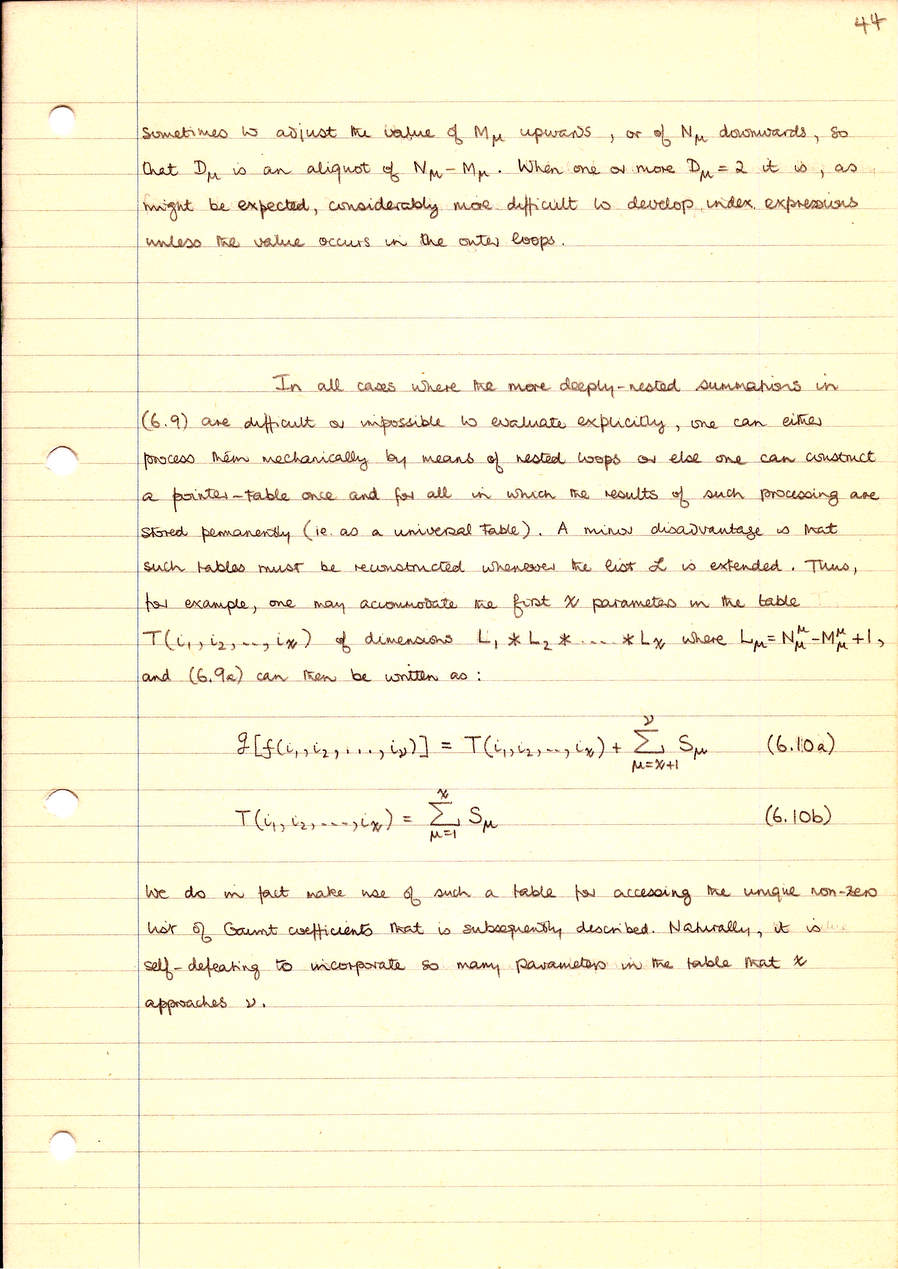 44
sometimes to adjust the value of Mμ upwards, or of Nμ downwards, so
that Dμ is an aliquot of Nμ − Mμ. When one or more Dμ = 2 it is, as
might be expected, considerably more difficult to develop index expressions
unless the value occurs in the outer loops.
In all cases where the more deeply-nested summations in
(6.9) are difficult or impossible to evaluate explicitly, one can either
process them mechanically by means of nested loops or else one can construct
a pointer-table once and for all in which the results of such processing are
stored permanently (ie. as a universal table). A minor disadvantage is that
such tables must be reconstructed whenever the list ℒ is extended. Thus,
for example, one may accommodate the first χ parameters in the table
T(i₁, i₂, ..., iχ) of dimensions L₁ * L₂ * .... * Lχ where Lμ = Nμ^μ − Mμ^μ + 1,
and (6.9a) can then be written as:
g[f(i₁, i₂, ..., iν)] = T(i₁, i₂, .., iχ) + ∑_{μ=χ+1}^{ν} Sμ (6.10a)
T(i₁, i₂, ...., iχ) = ∑_{μ=1}^{χ} Sμ (6.10b)
We do in fact make use of such a table for accessing the unique non-zero
list of Gaunt coefficients that is subsequently described. Naturally, it is
self-defeating to incorporate so many parameters in the table that χ
approaches ν.